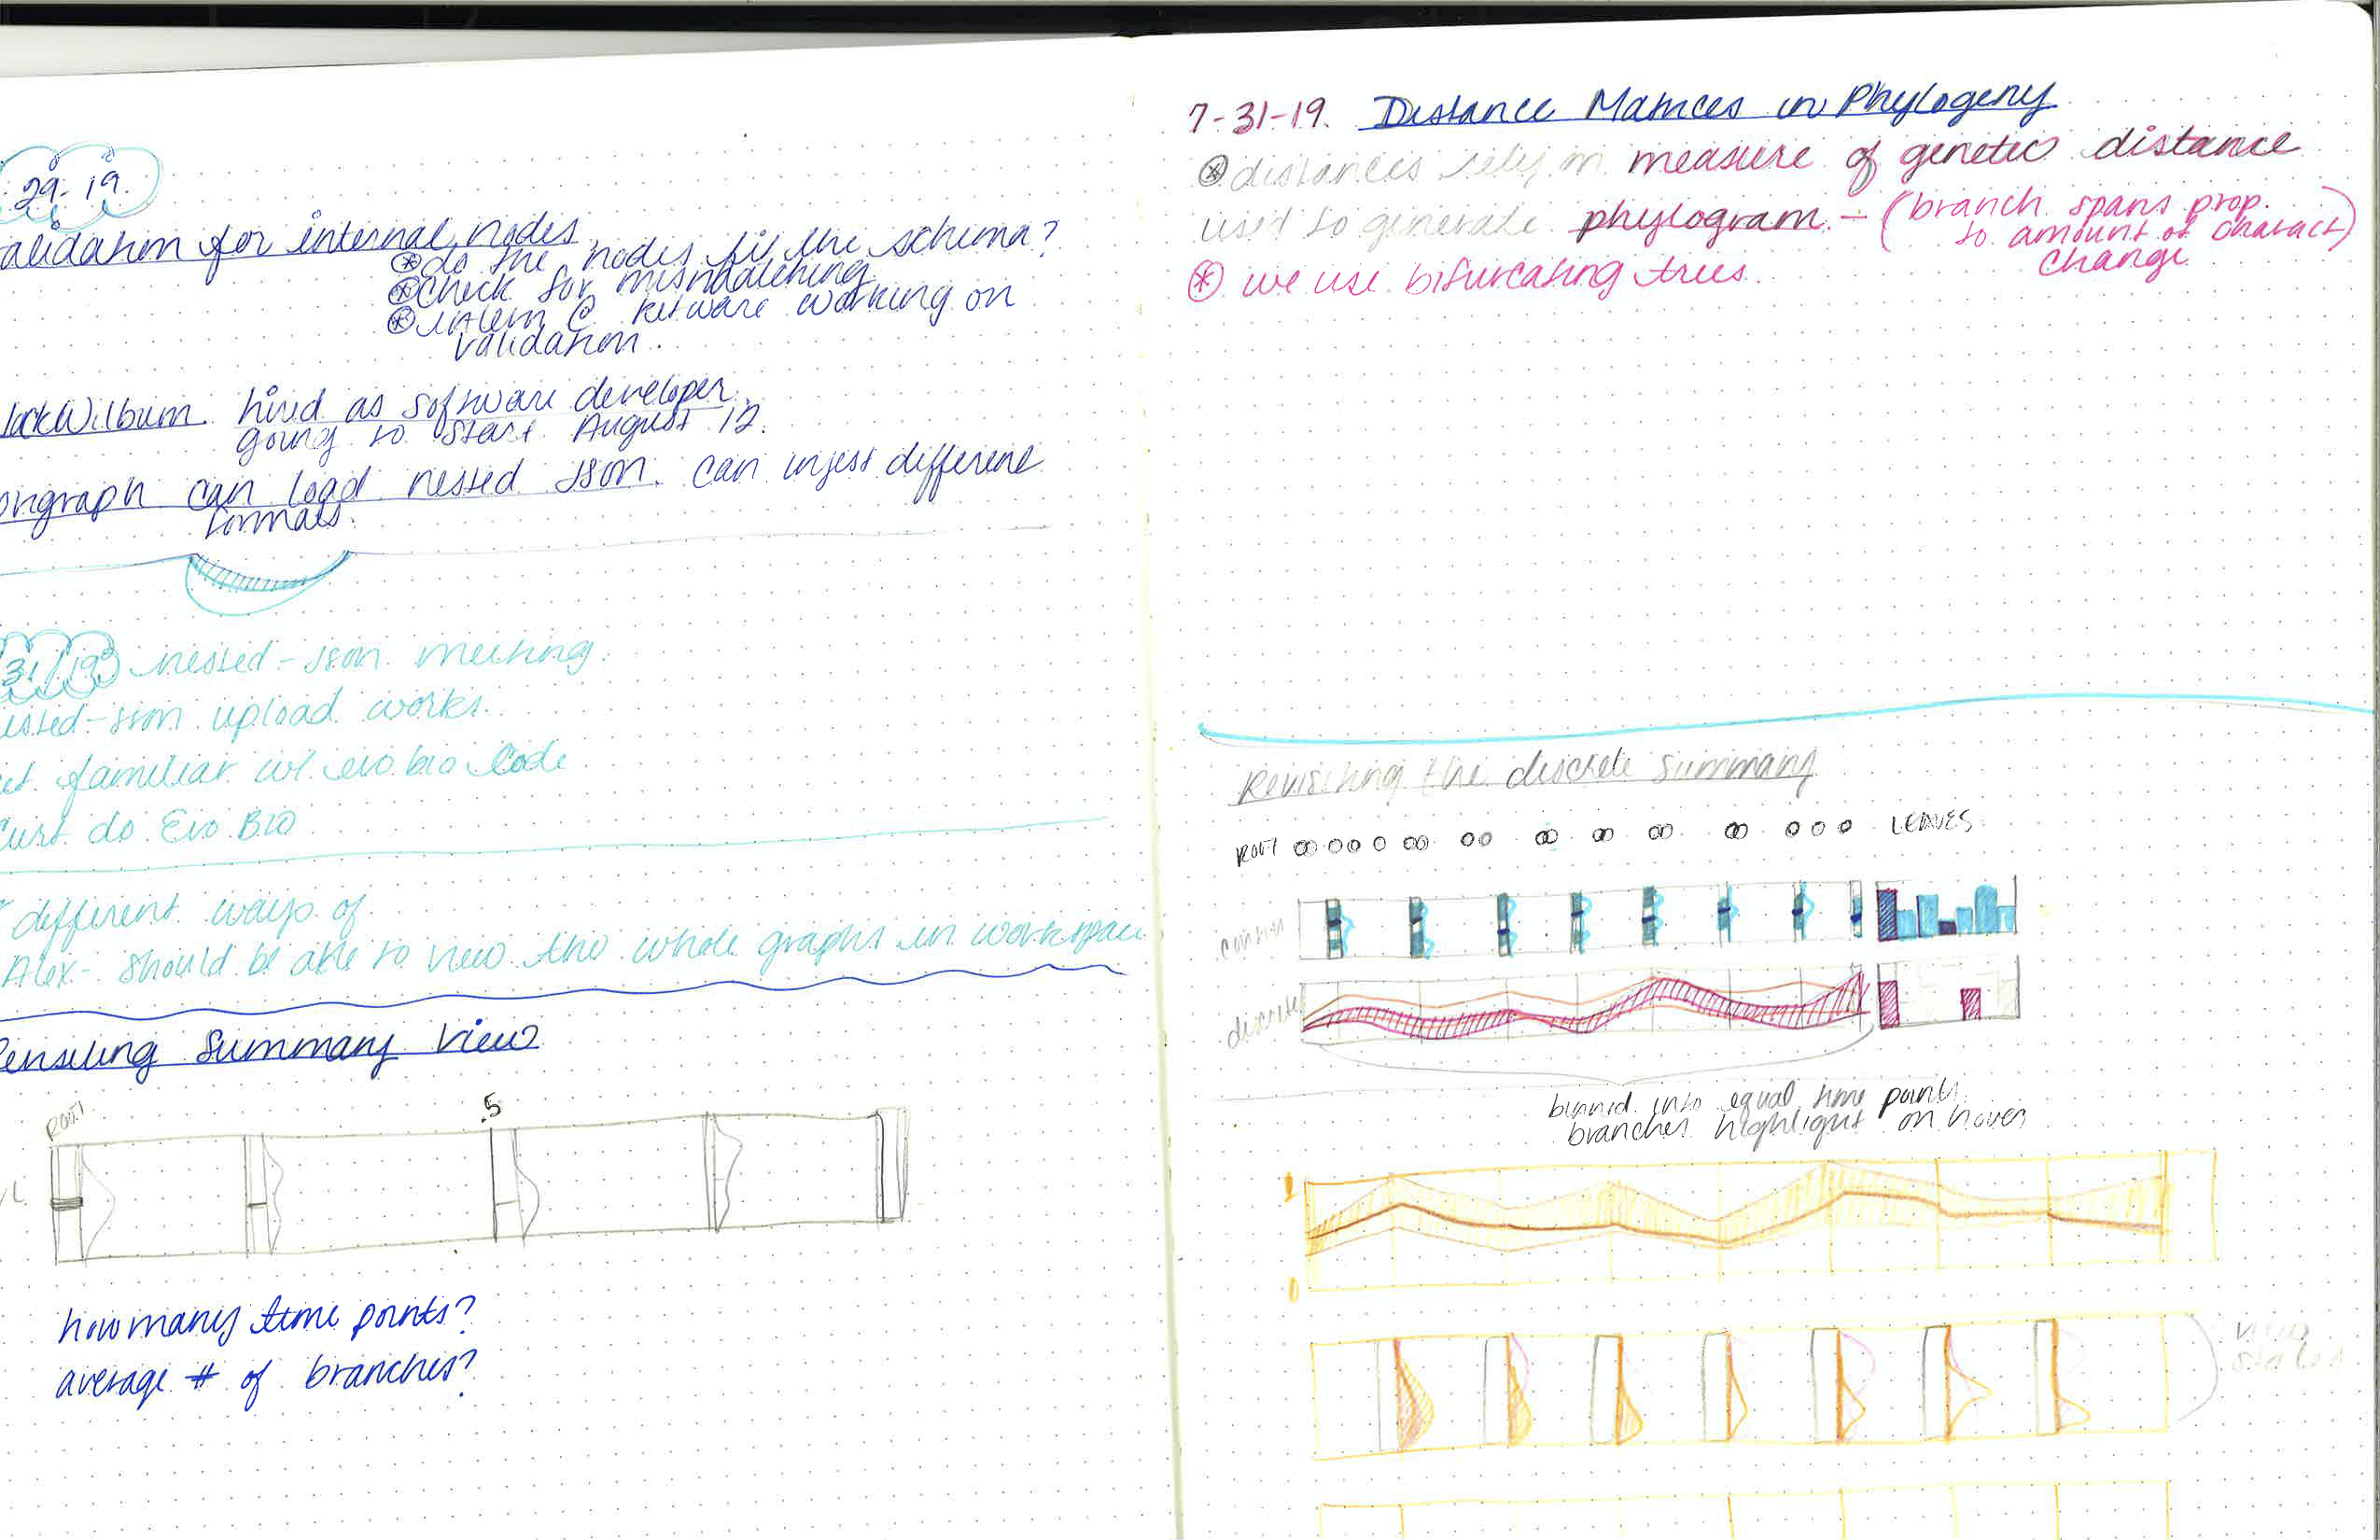 29-19.
alidation for internal nodes
do the nodes fit the schema?
check for mismatching
intern @ kitware working on
validation.
Jack Wilburn hired as software developer.
going to start August 12.
origraph can load nested JSON. can injest different
formats.
31/19 nested-JSON meeting.
ested-JSON upload works.
et familiar w/ evo.bio code
Curt do Evo Bio
different ways of
Alex- should be able to view the whole graphs in workspace
Summary View
ROOT
.5
how many time points?
average # of branches?
7-31-19. Distance Matrices in Phylogeny
distances rely on measure of genetic distance
used to generate phylogram - (branch spans prop.
to amount of charact)
change
we use bifurcating trees.
Revisiting the discrete summary
ROOT LEAVES
contin
discrete
binned into equal time points
branches highlight on hover
1
0